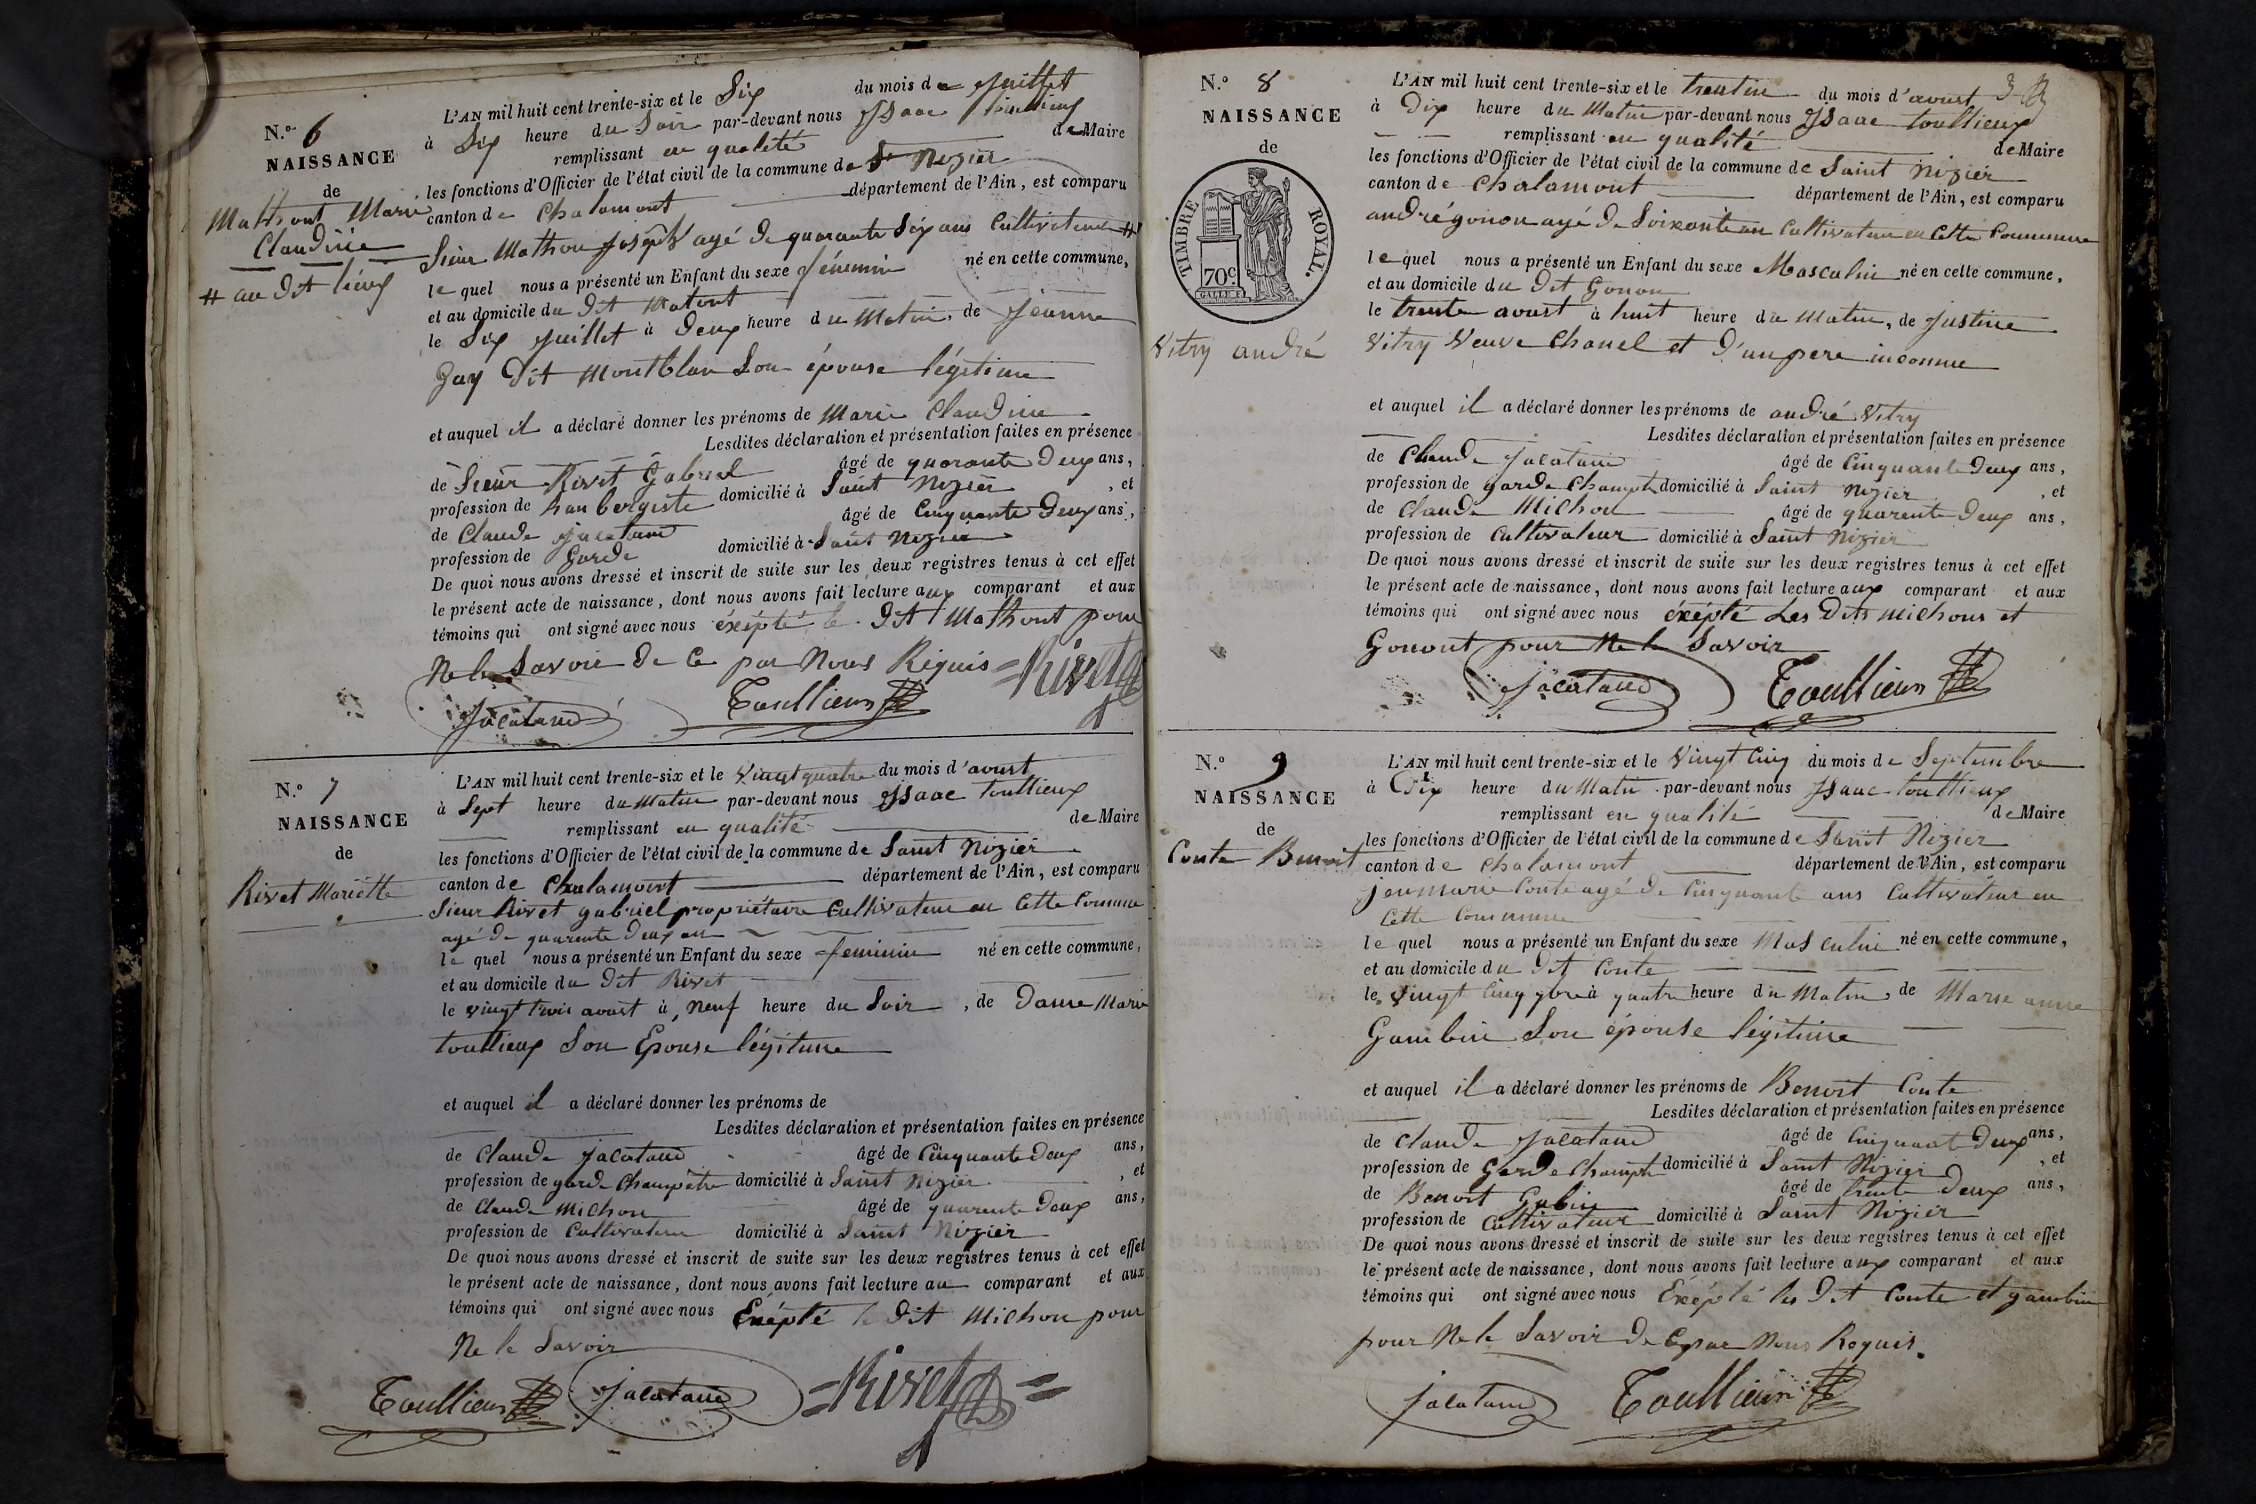 N.º 6
NAISSANCE
de
Mathont Marie
Claudine
# au dit lieux
L'AN mil huit cent trente-six et le Six du mois de Juillet
à Six heure du Soir par-devant nous Isaac toullieux
remplissant en qualité de Maire
les fonctions d'Officier de l'état civil de la commune de St Nizier
canton de Chalamont département de l'Ain, est comparu
Sieur Mathon Joseph agé de quarante Six ans Cultivateur #
le quel nous a présenté un Enfant du sexe féminin né en cette commune,
et au domicile du dit Matont
le Six Juillet à deux heure du Matin, de Jeanne
Jay dit Montblan Son épouse légitime
et auquel il a déclaré donner les prénoms de Marie Claudine
Lesdites déclaration et présentation faites en présence
de Sieur Rivet Gabriel âgé de quarante deux ans,
profession de haubergiste domicilié à Saint Nizier, et
de Claude Jacataud âgé de Cinquante deux ans,
profession de Garde domicilié à Saint Nizier
De quoi nous avons dressé et inscrit de suite sur les deux registres tenus à cet effet
le présent acte de naissance, dont nous avons fait lecture aux comparant et aux
témoins qui ont signé avec nous éxépté le dit Mathont pour
Ne le Savoir de Ce par Nous Requis = Rivet
Jacataud Toullieux
N.º 7
NAISSANCE
de
Rivet Mariette
L'AN mil huit cent trente-six et le Vingt quatre du mois d'avoust
à Sept heure du Matin par-devant nous Isaac toullieux
remplissant en qualité de Maire
les fonctions d'Officier de l'état civil de la commune de Saint Nizier
canton de Chalamont département de l'Ain, est comparu
Sieur Rivet gabriel propriétaire Cultivateur en Cette Commune
agé de quarente deux an
le quel nous a présenté un Enfant du sexe feminin né en cette commune,
et au domicile du dit Rivet
le vingt trois avoust à Neuf heure du Soir, de Dame Marie
toullieux Son Epouse légitime
et auquel il a déclaré donner les prénoms de
Lesdites déclaration et présentation faites en présence
de Claude Jacataud âgé de Cinquante deux ans,
profession de garde Champêtre domicilié à Saint Nizier, et
de Claude Michon âgé de quarente deux ans,
profession de Cultivateur domicilié à Saint Nizier
De quoi nous avons dressé et inscrit de suite sur les deux registres tenus à cet effet
le présent acte de naissance, dont nous avons fait lecture au comparant et aux
témoins qui ont signé avec nous Exépté le dit Michon pour
Ne le Savoir
Toullieux Jacataud = Rivet =
N.º 8
NAISSANCE
de
TIMBRE ROYAL.
70c
Vitry andré
L'AN mil huit cent trente-six et le trentin du mois d'avoust
à Dix heure du Matin par-devant nous Isaac toullieux
remplissant en qualité de Maire
les fonctions d'Officier de l'état civil de la commune de Saint Nizier
canton de Chalamont département de l'Ain, est comparu
andré gonon agé de Soixante an Cultivateur en Cette Commune
le quel nous a présenté un Enfant du sexe Masculin né en cette commune,
et au domicile du dit Gonon
le trente avoust à huit heure du Matin, de Justine
Vitry Veuve Chanel et d'un pere inconnue
et auquel il a déclaré donner les prénoms de andré Vitry
Lesdites déclaration et présentation faites en présence
de Claude Jacataud âgé de Cinquante deux ans,
profession de garde Champetr domicilié à Saint Nizier, et
de Claude Michon âgé de quarente deux ans,
profession de Cultivateur domicilié à Saint Nizier
De quoi nous avons dressé et inscrit de suite sur les deux registres tenus à cet effet
le présent acte de naissance, dont nous avons fait lecture aux comparant et aux
témoins qui ont signé avec nous éxépté Les Dits Michons et
Gonont pour Ne le Savoir
Jacataud Toullieux
N.º 9
NAISSANCE
de
Conte Benoit
L'AN mil huit cent trente-six et le Vingt Cinq du mois de Septembre
à Six heure du Matin par-devant nous Isaac toullieux
remplissant en qualité de Maire
les fonctions d'Officier de l'état civil de la commune de Saint Nizier
canton de Chalamont département de l'Ain, est comparu
jeanmarie Conte agé de Cinquante ans Cultivateur en
Cette Commune
le quel nous a présenté un Enfant du sexe Masculin né en cette commune,
et au domicile du dit Conte
le Vingt Cinq 7bre à quatre heure du Matin, de Marie anne
Gambin Son épouse légitime
et auquel il a déclaré donner les prénoms de Benoit Conte
Lesdites déclaration et présentation faites en présence
de Claude Jacataud âgé de Cinquant deux ans,
profession de Garde Champetr domicilié à Saint Nizier, et
de Benoit Gabin âgé de trente deux ans,
profession de Cultivateur domicilié à Saint Nizier
De quoi nous avons dressé et inscrit de suite sur les deux registres tenus à cet effet
le présent acte de naissance, dont nous avons fait lecture aux comparant et aux
témoins qui ont signé avec nous Exépté les dit Conte et gambin
pour Ne le Savoir de Ce par Nous Requis.
Jacataud Toullieux